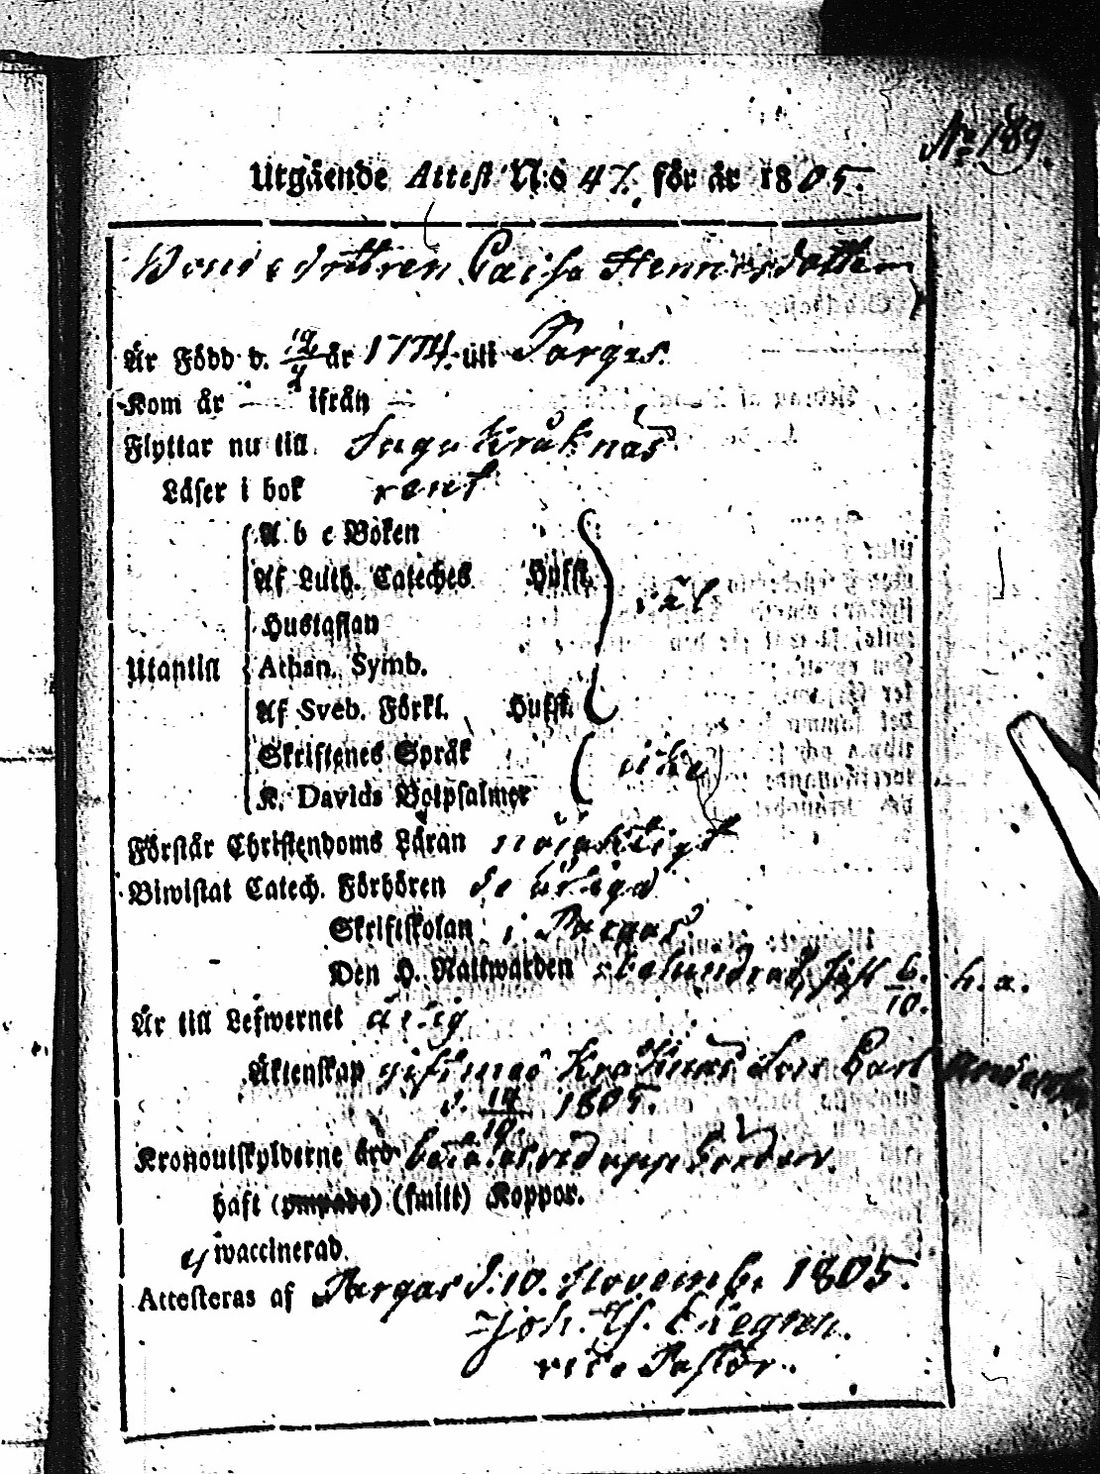 No 189.
Utgående Attest N:o 47. för år 1805.
Bonde dottren Caisa Henricsdotter
Är Född d. 19/4 år 1774. uti Pargas.
Kom år — ifrån —
Flyttar nu till Kråknäs
Läser i bok rent
A b c Boken
Af Luth. Cateches Hufst. väl
Hustaflan
Utantill Athan. Symb.
Af Sveb. Förkl. Hufst.
Skriftenes Språk icke
K. Davids Botpsalmer
Förstår Christendoms Läran nöjaktigt
Biwistat Catech. Förhören
Skriftskolan i Pargas
Den H. Nattwarden sist 6/10. h. a.
Är till Lefwernet ärlig
Äktenskap gift med Kråknäs Carl
d. 19/10. 1805.
Kronoutskylderne äro betalte
haft (ympade) (smitt) Koppor.
ej waccinerad
Attesteras af Pargas d. 10. Novemb. 1805.
Joh.
vice Pastor.